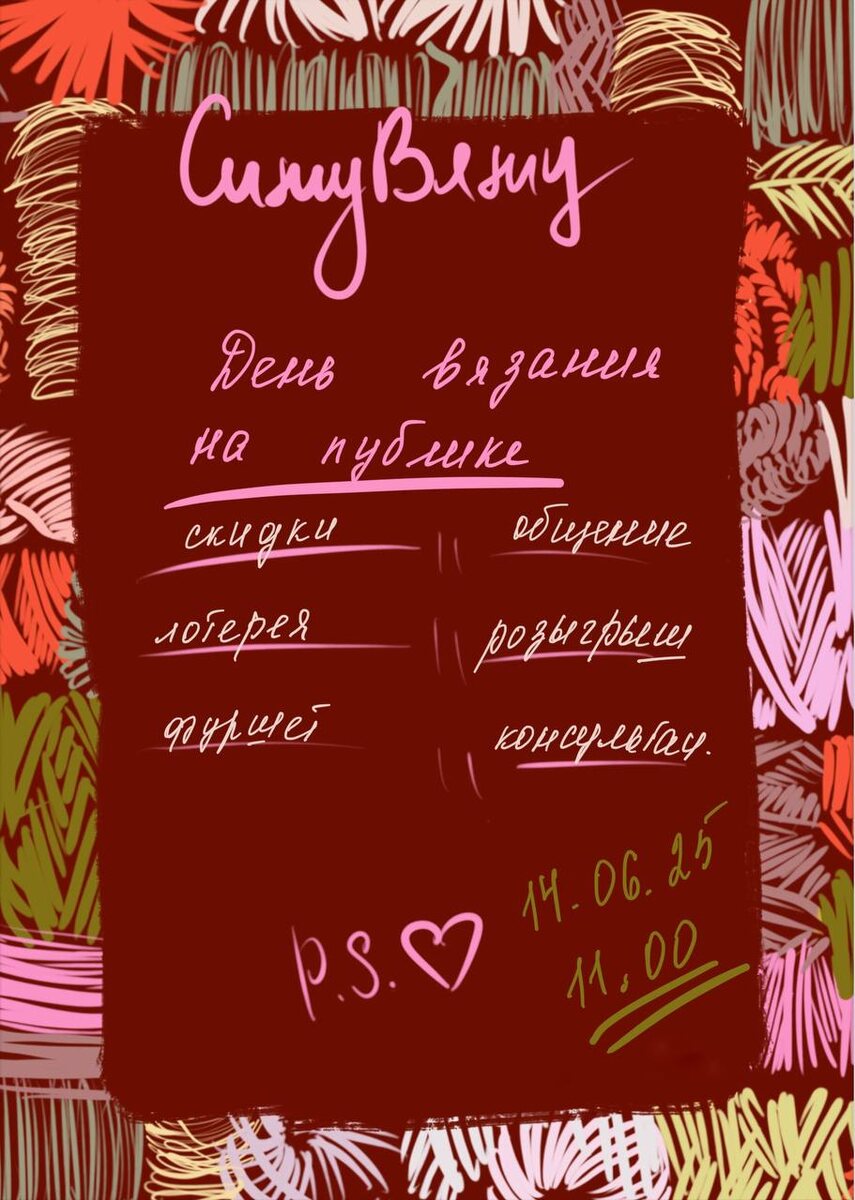 СижуВяжу
День вязания
на публике
скидки || общение
лотерея || розыгрыш
фуршет || консультац.
14.06.25
P.S. ♡
11.00